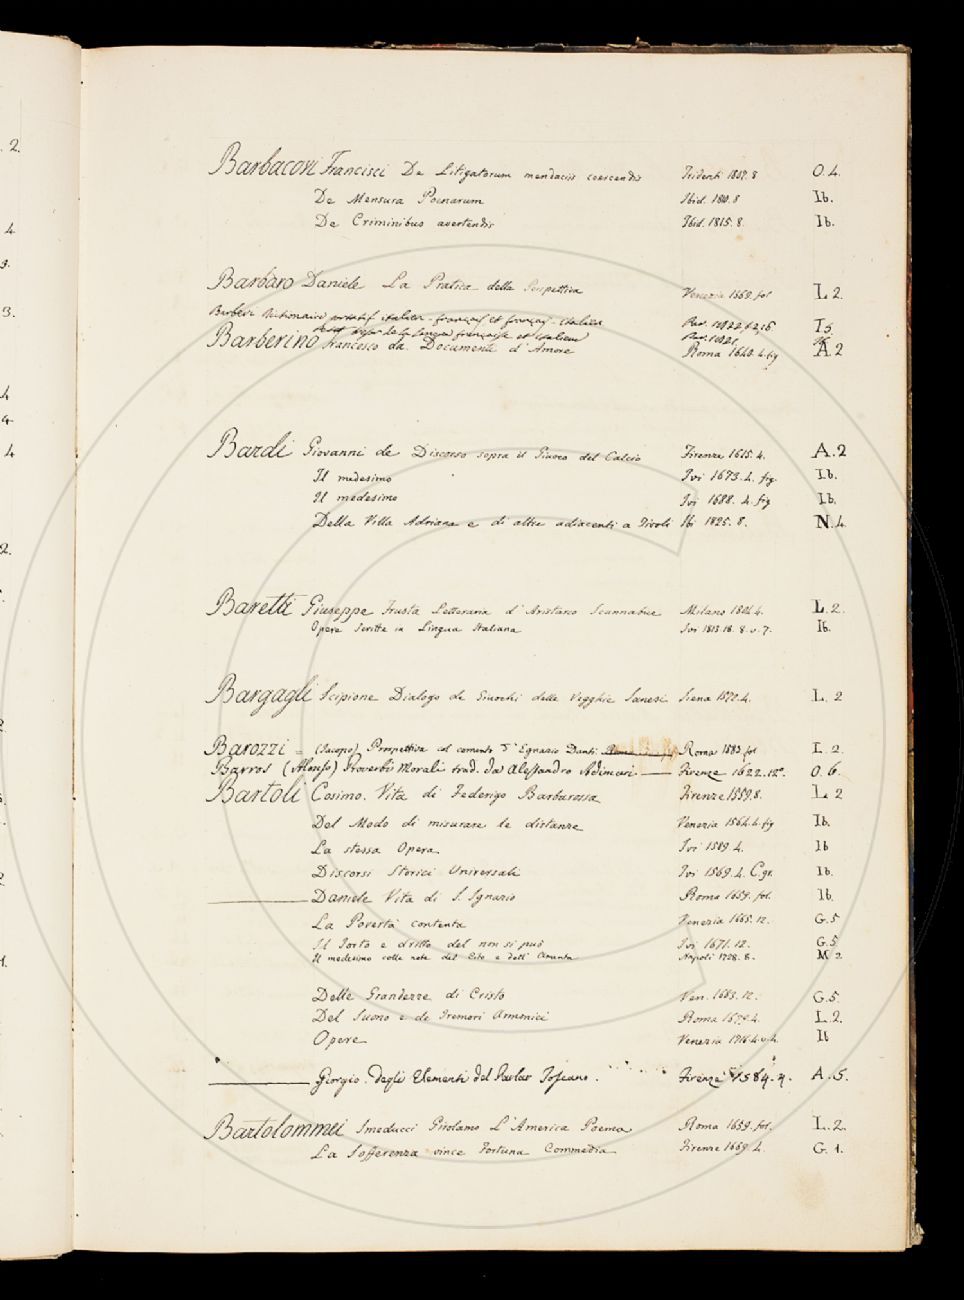 . 2.
4
9.
3.
4
4
4
2.
Barbacovi Francisci De Litigatorum mendaciis coercendis Tridenti 1807. 8 O. 4.
De Mensura Poenarum Ibid. 1810. 8 Ib.
De Criminibus avertendis Ibid. 1815. 8. Ib.
Barbaro Daniele La Pratica della Perspettiva Venezia 1569. fol L 2.
Barberi Dictionaire italien-français et français-italien Par. T5
Petit de la langue française et italien Par. 1821.
Barberino Francesco da. Documenti d'Amore Roma 1640. 4. fig A. 2
Bardi Giovanni de Discorso sopra il Giuoco del Calcio Firenze 1615. 4. A. 2
Il medesimo Ivi 1673. 4. fig. Ib.
Il medesimo Ivi 1688. 4. fig Ib.
Della Villa Adriana e di altre adiacenti a Tivoli Ibi 1825. 8. N. 4.
Baretti Giuseppe Frusta Letteraria d'Aristarco Scannabue Milano 1804. 4. L. 2.
Opere Scritte in Lingua Italiana Ivi 1813. 18. 8. v. 7. Ib.
Bargagli Scipione Dialogo de Giuochi delle Vegghie Sanesi Siena 1572. 4. L. 2
Barozzi = (Jacopo) Prospettiva col comento d' Egnazio Danti. Roma 1583. fol L. 2.
Barros (Alonso) Proverbi Morali trad. da Alessandro Adimari — Firenze 1622. 12°. O. 6.
Bartoli Cosimo. Vita di Federigo Barbarossa Firenze 1559. 8. L 2
Del Modo di misurare le distanze Venezia 1564. 4. fig Ib.
La stessa Opera Ivi 1589. 4. Ib
Discorsi Storici Universali Ivi 1569. 4. C. gr. Ib.
Daniele Vita di S. Ignazio Roma 1659. fol. Ib.
La Povertà contenta Venezia 1665. 12. G. 5
Il Torto e dritto del non si può Ivi 1671. 12. G. 5
Il medesimo colle note del Cito e dell' Amenta Napoli 1728. 8. M 2
Delle Grandezze di Cristo Ven. 1683. 12. G. 5.
Del Suono e de Tremori Armonici Roma 1679. 4. L. 2.
Opere Venezia 1716. 4. v. 4. Ib
Giorgio. Degli Elementi del Parlar Toscano. Firenze 1584. 4. A. 5.
Bartolommei Smeducci Girolamo L'America Poema Roma 1659. fol. L. 2.
La Sofferenza vince Fortuna Commedia Firenze 1669. 4. G. 1.